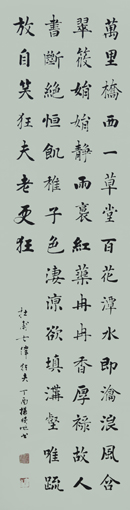 萬里橋西一草堂百花潭水即滄浪風含
翠篠娟娟靜雨裛紅蕖冉冉香厚祿故人
書斷絕恒飢稚子色淒涼欲填溝壑唯疏
放自笑狂夫老更狂
杜甫七律狂夫 丁酉 書